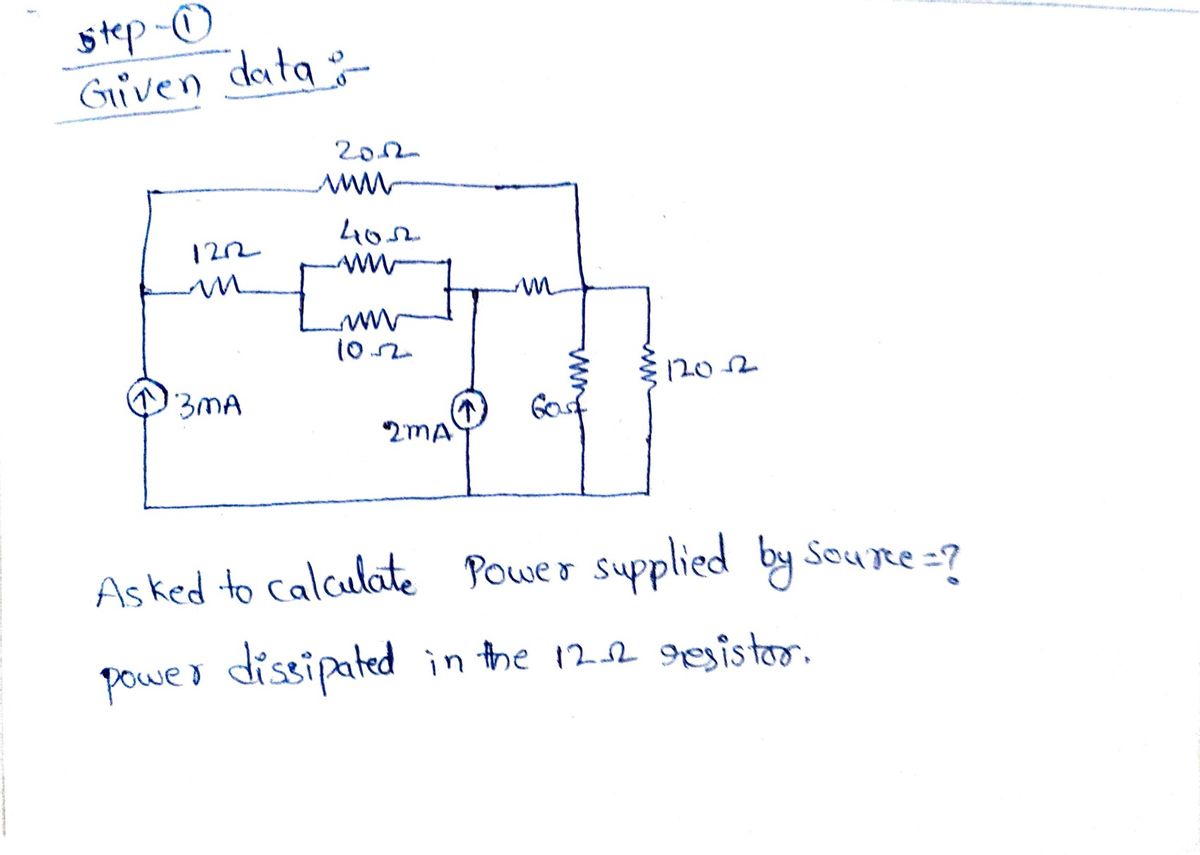 Step-①
Given data:-
20Ω
40Ω
12Ω
10Ω
120Ω
3mA
60Ω
2mA
Asked to calculate Power supplied by source=?
power dissipated in the 12Ω resistor.